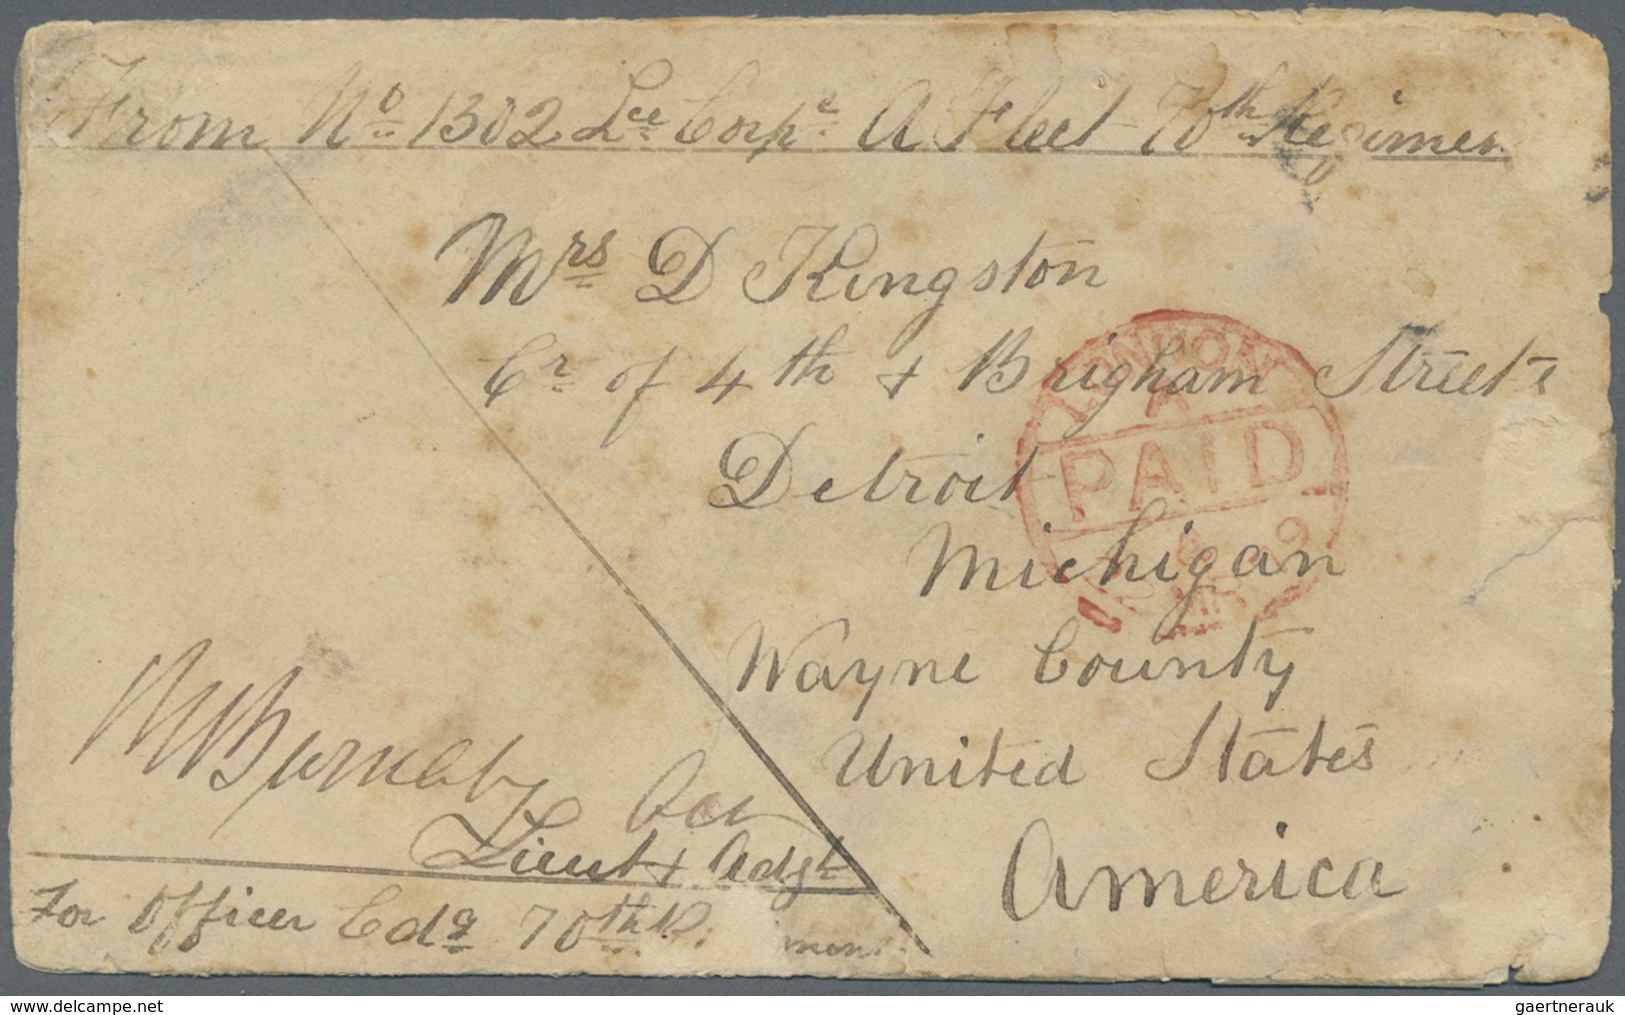 From No 1302 Lce Corpl A Fleet 70th Regimen
Mrs D Kingston
Cr of 4th & Brigham Streets
LONDON
A
PAID
Detroit
Michigan
Wayne County
United States
America
Burnaby
Lieut & Adjt
For Officer Cdg 70th
delcampe.net
gaertnerauk